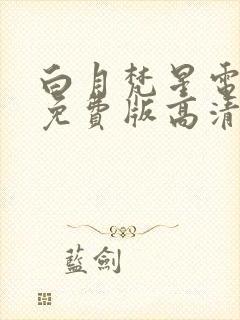 白月梵星電
免費版高清
藍劍